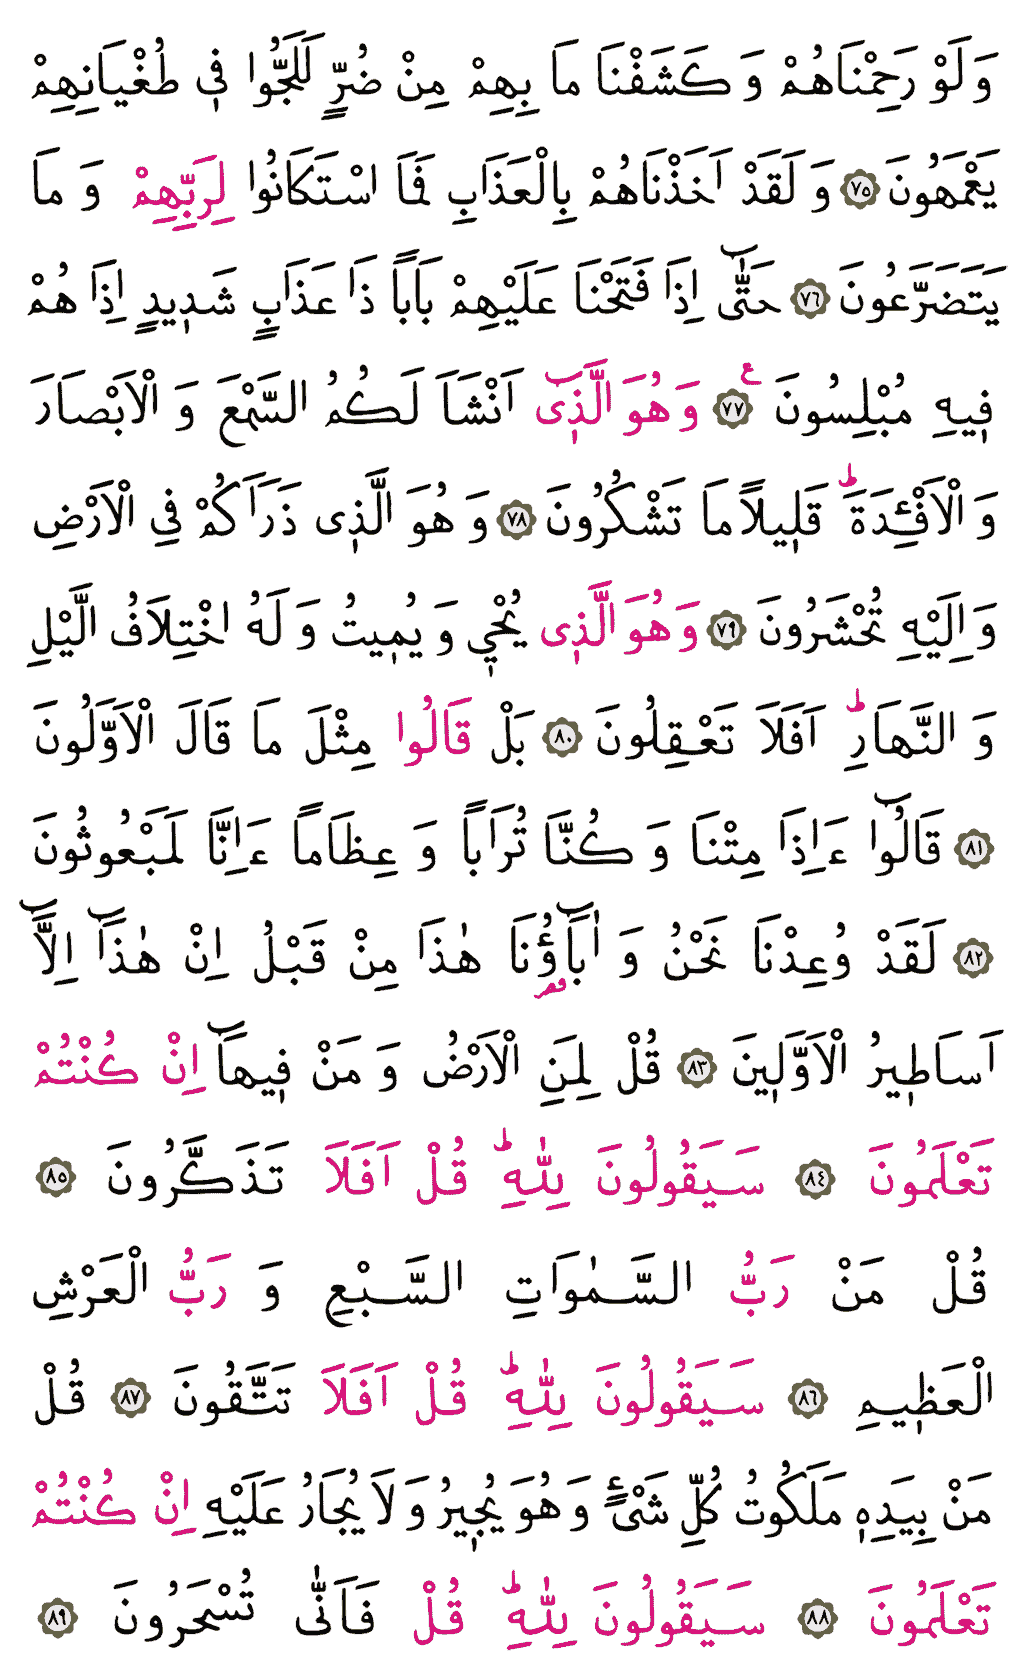 وَ لَوْ رَحِمْنَاهُمْ وَ كَشَفْنَا مَا بِهِمْ مِنْ ضُرٍّ لَلَجُّوا فٖي طُغْيَانِهِمْ
يَعْمَهُونَ ﴿٧٥﴾ وَ لَقَدْ اَخَذْنَاهُمْ بِالْعَذَابِ فَمَا اسْتَكَانُوا لِرَبِّهِمْ وَ مَا
يَتَضَرَّعُونَ ﴿٧٦﴾ حَتّٰٓى اِذَا فَتَحْنَا عَلَيْهِمْ بَابًا ذَا عَذَابٍ شَدٖيدٍ اِذَا هُمْ
فٖيهِ مُبْلِسُونَ ﴿٧٧﴾ ع وَ هُوَ الَّذٖٓى اَنْشَاَ لَكُمُ السَّمْعَ وَ الْاَبْصَارَ
وَ الْاَفْـِٔدَةَ ؕ قَلٖيلًا مَا تَشْكُرُونَ ﴿٧٨﴾ وَ هُوَ الَّذٖى ذَرَاَكُمْ فِى الْاَرْضِ
وَ اِلَيْهِ تُحْشَرُونَ ﴿٧٩﴾ وَ هُوَ الَّذٖى يُحْيٖ وَ يُمٖيتُ وَ لَهُ اخْتِلَافُ الَّيْلِ
وَ النَّهَارِ ؕ اَفَلَا تَعْقِلُونَ ﴿٨٠﴾ بَلْ قَالُوا مِثْلَ مَا قَالَ الْاَوَّلُونَ
﴿٨١﴾ قَالُٓوا ءَاِذَا مِتْنَا وَ كُنَّا تُرَابًا وَ عِظَامًا ءَاِنَّا لَمَبْعُوثُونَ
﴿٨٢﴾ لَقَدْ وُعِدْنَا نَحْنُ وَ اٰبَٓاؤُ۬نَا هٰذَا مِنْ قَبْلُ اِنْ هٰذَٓا اِلَّٓا
اَسَاطٖيرُ الْاَوَّلٖينَ ﴿٨٣﴾ قُلْ لِمَنِ الْاَرْضُ وَ مَنْ فٖيهَٓا اِنْ كُنْتُمْ
تَعْلَمُونَ ﴿٨٤﴾ سَيَقُولُونَ لِلّٰهِ ؕ قُلْ اَفَلَا تَذَكَّرُونَ ﴿٨٥﴾
قُلْ مَنْ رَبُّ السَّمٰوَاتِ السَّبْعِ وَ رَبُّ الْعَرْشِ
الْعَظٖيمِ ﴿٨٦﴾ سَيَقُولُونَ لِلّٰهِ ؕ قُلْ اَفَلَا تَتَّقُونَ ﴿٨٧﴾ قُلْ
مَنْ بِيَدِهٖ مَلَكُوتُ كُلِّ شَىْءٍ وَ هُوَ يُجٖيرُ وَ لَا يُجَارُ عَلَيْهِ اِنْ كُنْتُمْ
تَعْلَمُونَ ﴿٨٨﴾ سَيَقُولُونَ لِلّٰهِ ؕ قُلْ فَاَنّٰى تُسْحَرُونَ ﴿٨٩﴾